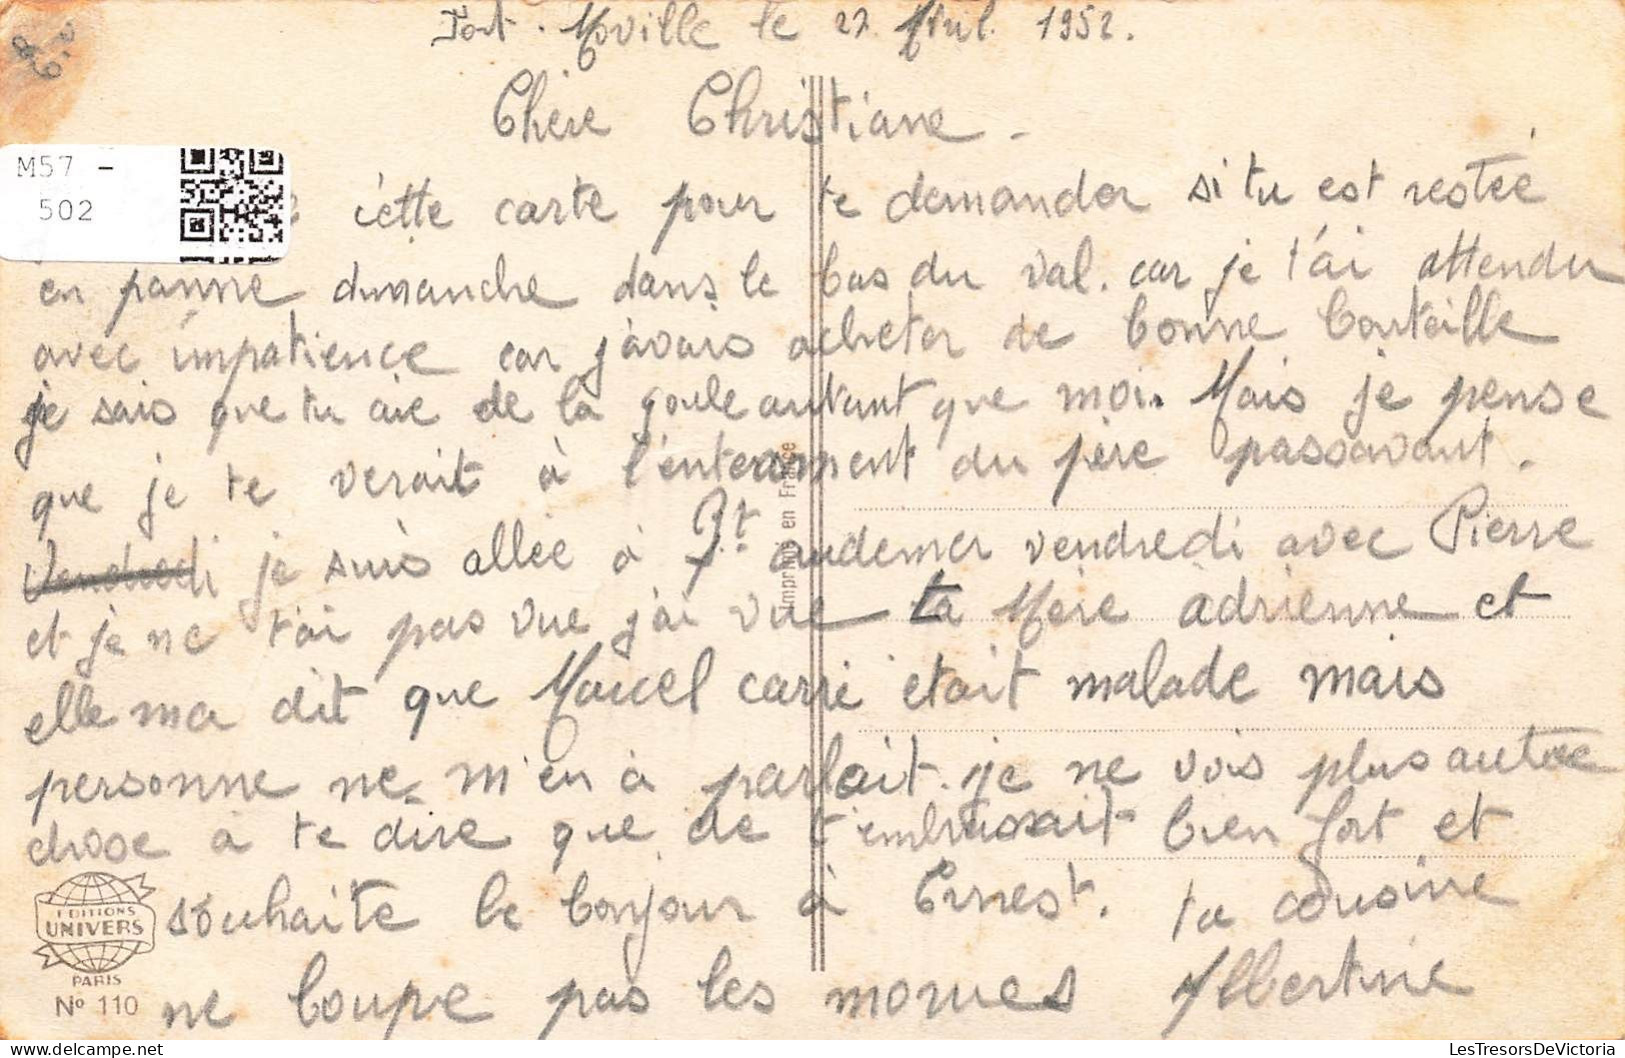 Fort-Moville le 27 Avril 1952.
Chère Christiane -
M57 -
502
cette carte pour te demander si tu est restée
en panne dimanche dans le bas du val. car je t'ai attendu
avec impatience car j'avais acheter de bonne bouteille
je sais que tu aie de la goule autant que moi. Mais je pense
que je te verait à l'enterrement du père passavant.
Vendredi je suis allée à Pt audemer vendredi avec Pierre
et je ne t'ai pas vue j'ai vue ta Mère adrienne et
elle ma dit que Marcel carré etait malade mais
personne ne m'en à parlait. je ne vois plus autre
chose à te dire que de t'embrassait bien fort et
souhaite le bonjour à Ernest. ta cousine
ne loupe pas les morues Albertine
Imprimé en France
EDITIONS
UNIVERS
PARIS
No 110
LesTresorsDeVictoria